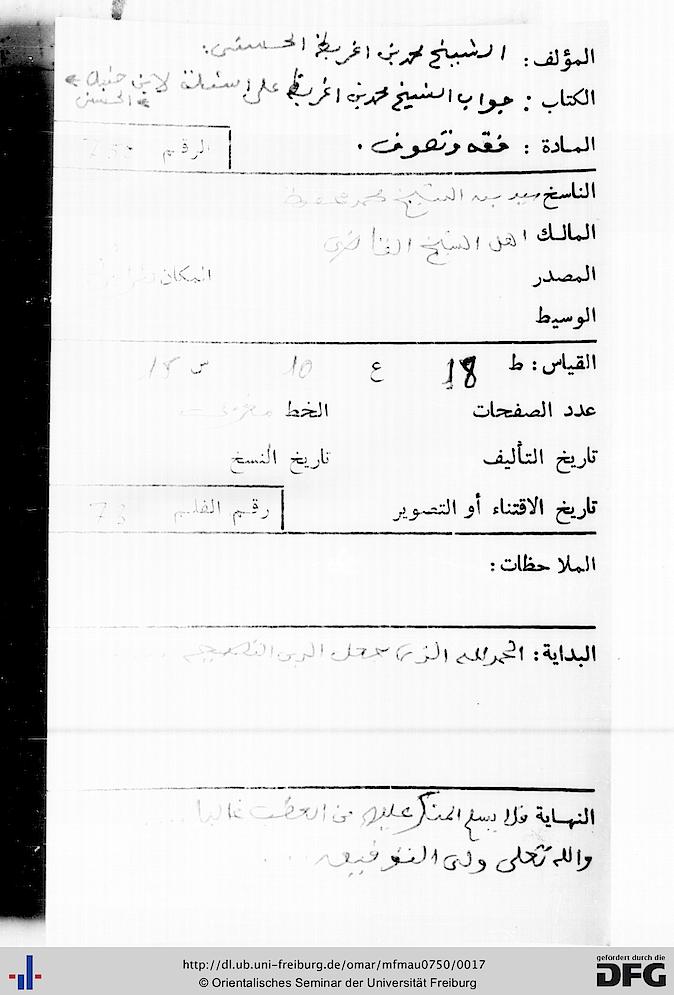 المؤلف: الشيخ محمد بن اغربط الحسني.
الكتاب: جواب الشيخ محمد بن اغربط على اسئلة لابن حنبل
الحسني
المادة: فقه وتصوف.
الرقم
الناسخ سيد بن الشيخ محمد
المالك اهل الشيخ القاضي
المصدر المكان
الوسيط
القياس: ط 18 ع 10 س 18
عدد الصفحات الخط مغربي
تاريخ التأليف تاريخ النسخ
تاريخ الاقتناء أو التصوير رقم الفلم 73
الملاحظات:
البداية: الحمد لله الذي جعل الدين النصيحة
النهاية فلا يسلم المنكر عليه من العطب غالبا
والله تعلى ولي التوفيق ...
http://dl.ub.uni-freiburg.de/omar/mfmau0750/0017
© Orientalisches Seminar der Universität Freiburg
gefördert durch die
DFG